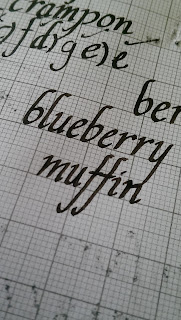 crampon
f d) g e) e
ber
blueberry
muffin